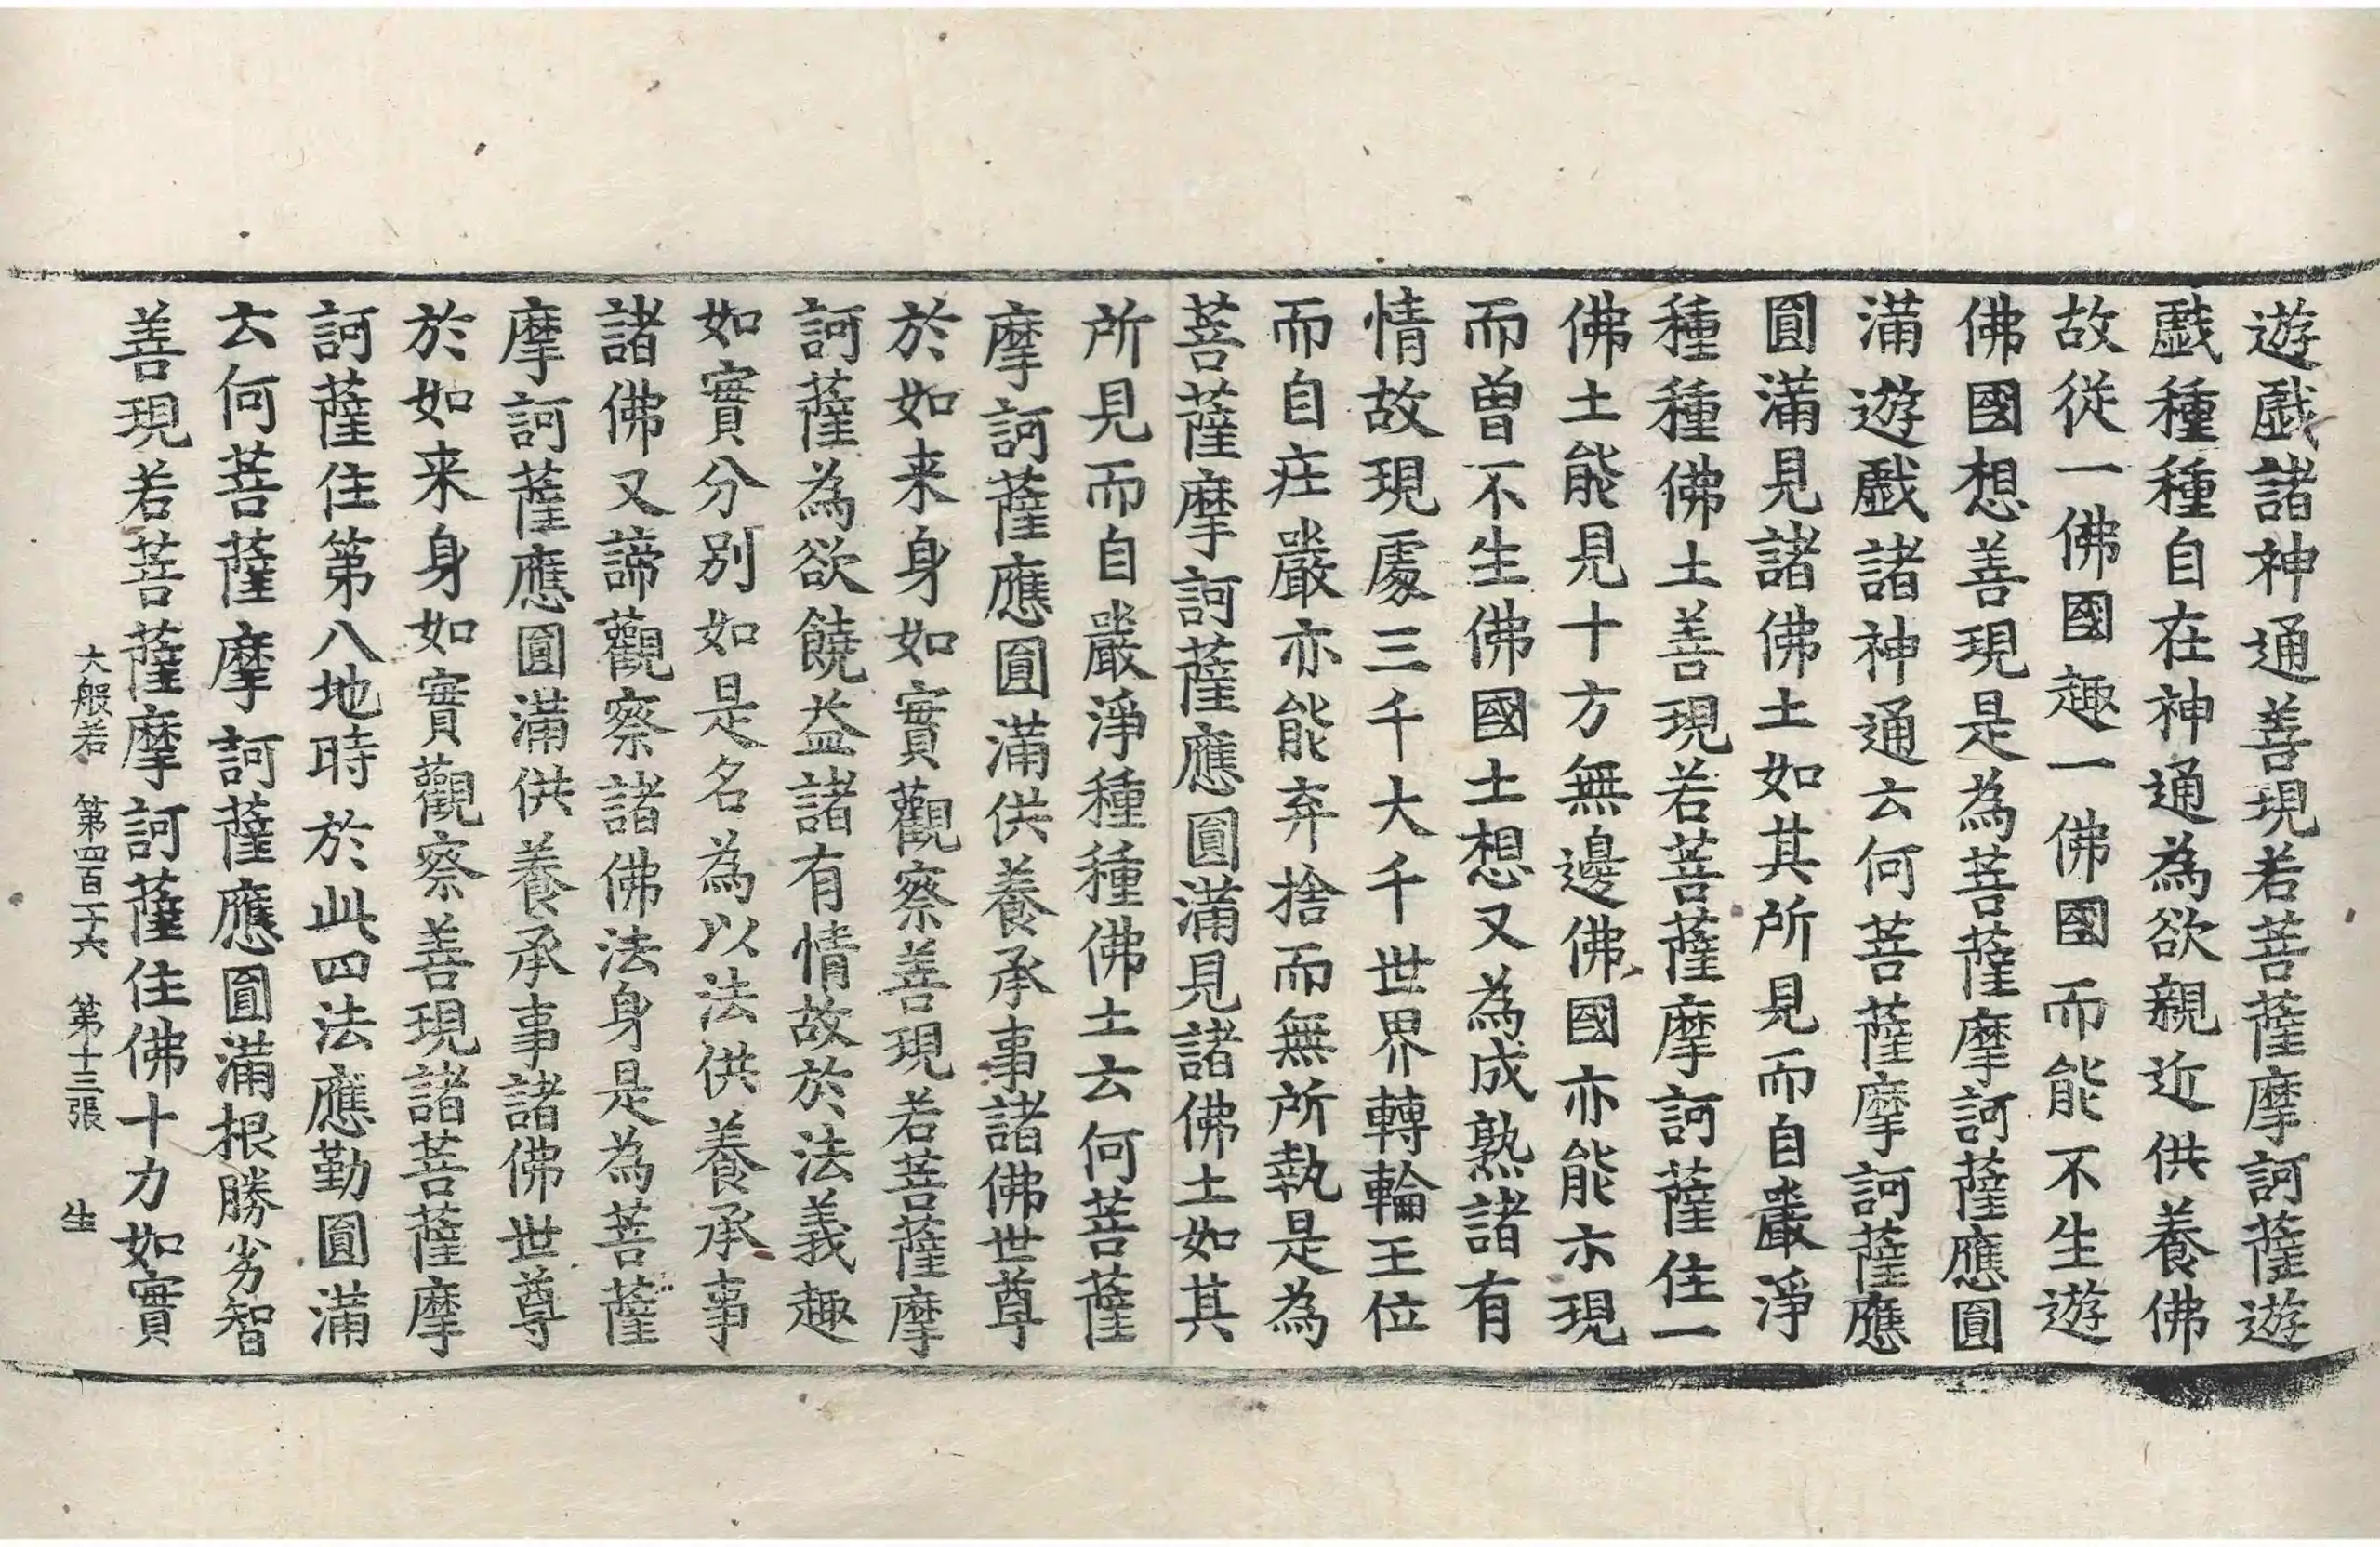 遊戲諸神通善現若菩薩摩訶薩遊
戲種種自在神通為欲親近供養佛
故從一佛國趣一佛國而能不生遊
佛國想善現是為菩薩摩訶薩應圓
滿遊戲諸神通云何菩薩摩訶薩應
圓滿見諸佛土如其所見而自嚴淨
種種佛土善現若菩薩摩訶薩住一
佛土能見十方無邊佛國亦能示現
而曾不生佛國土想又為成熟諸有
情故現處三千大千世界轉輪王位
而自莊嚴亦能弃捨而無所執是為
菩薩摩訶薩應圓滿見諸佛土如其
所見而自嚴淨種種佛土云何菩薩
摩訶薩應圓滿供養承事諸佛世尊
於如来身如實觀察善現若菩薩摩
訶薩為欲饒益諸有情故於法義趣
如實分別如是名為以法供養承事
諸佛又諦觀察諸佛法身是為菩薩
摩訶薩應圓滿供養承事諸佛世尊
於如来身如實觀察善現諸菩薩摩
訶薩住第八地時於此四法應勤圓滿
云何菩薩摩訶薩應圓滿根勝劣智
善現若菩薩摩訶薩住佛十力如實
大般若 第四百一十六 第十三張 生